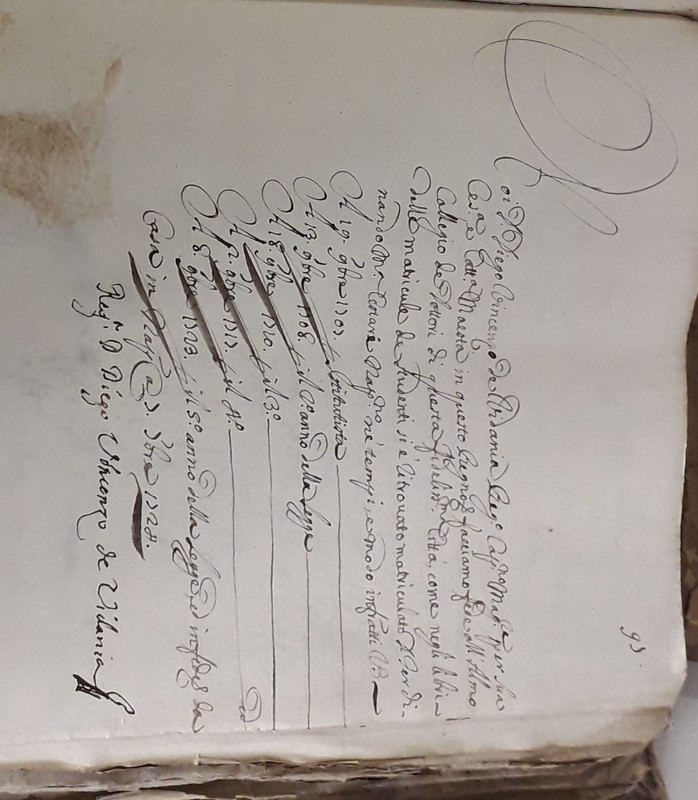 95.
Noi D. Diego Vincenzo de Vidania Reg.º Cap.no Magg.re per Sua
Ces.a e Catt.a Maestà in questo Regno facciamo fede all'Almo
Collegio de Dottori di questa fidelis.ma Città, come negli libri
delle matricule de studenti si è ritrovato matriculato D. Ferdi-
nando M.a Nap.no ne' tempi, e modo infratti V3
A 19. 9bre 1707. Istitutista
A 13. 9bre 1708. il 2º anno della legge
A 18. 9bre 1710. il 3º
A 9bre il 4º ed
A 8. 9bre 1723. il 5º anno della legge, ed in fede da
Casa in Nap. a dì 9bre 1728.
Reg. D Diego Vincenzo de Vidania